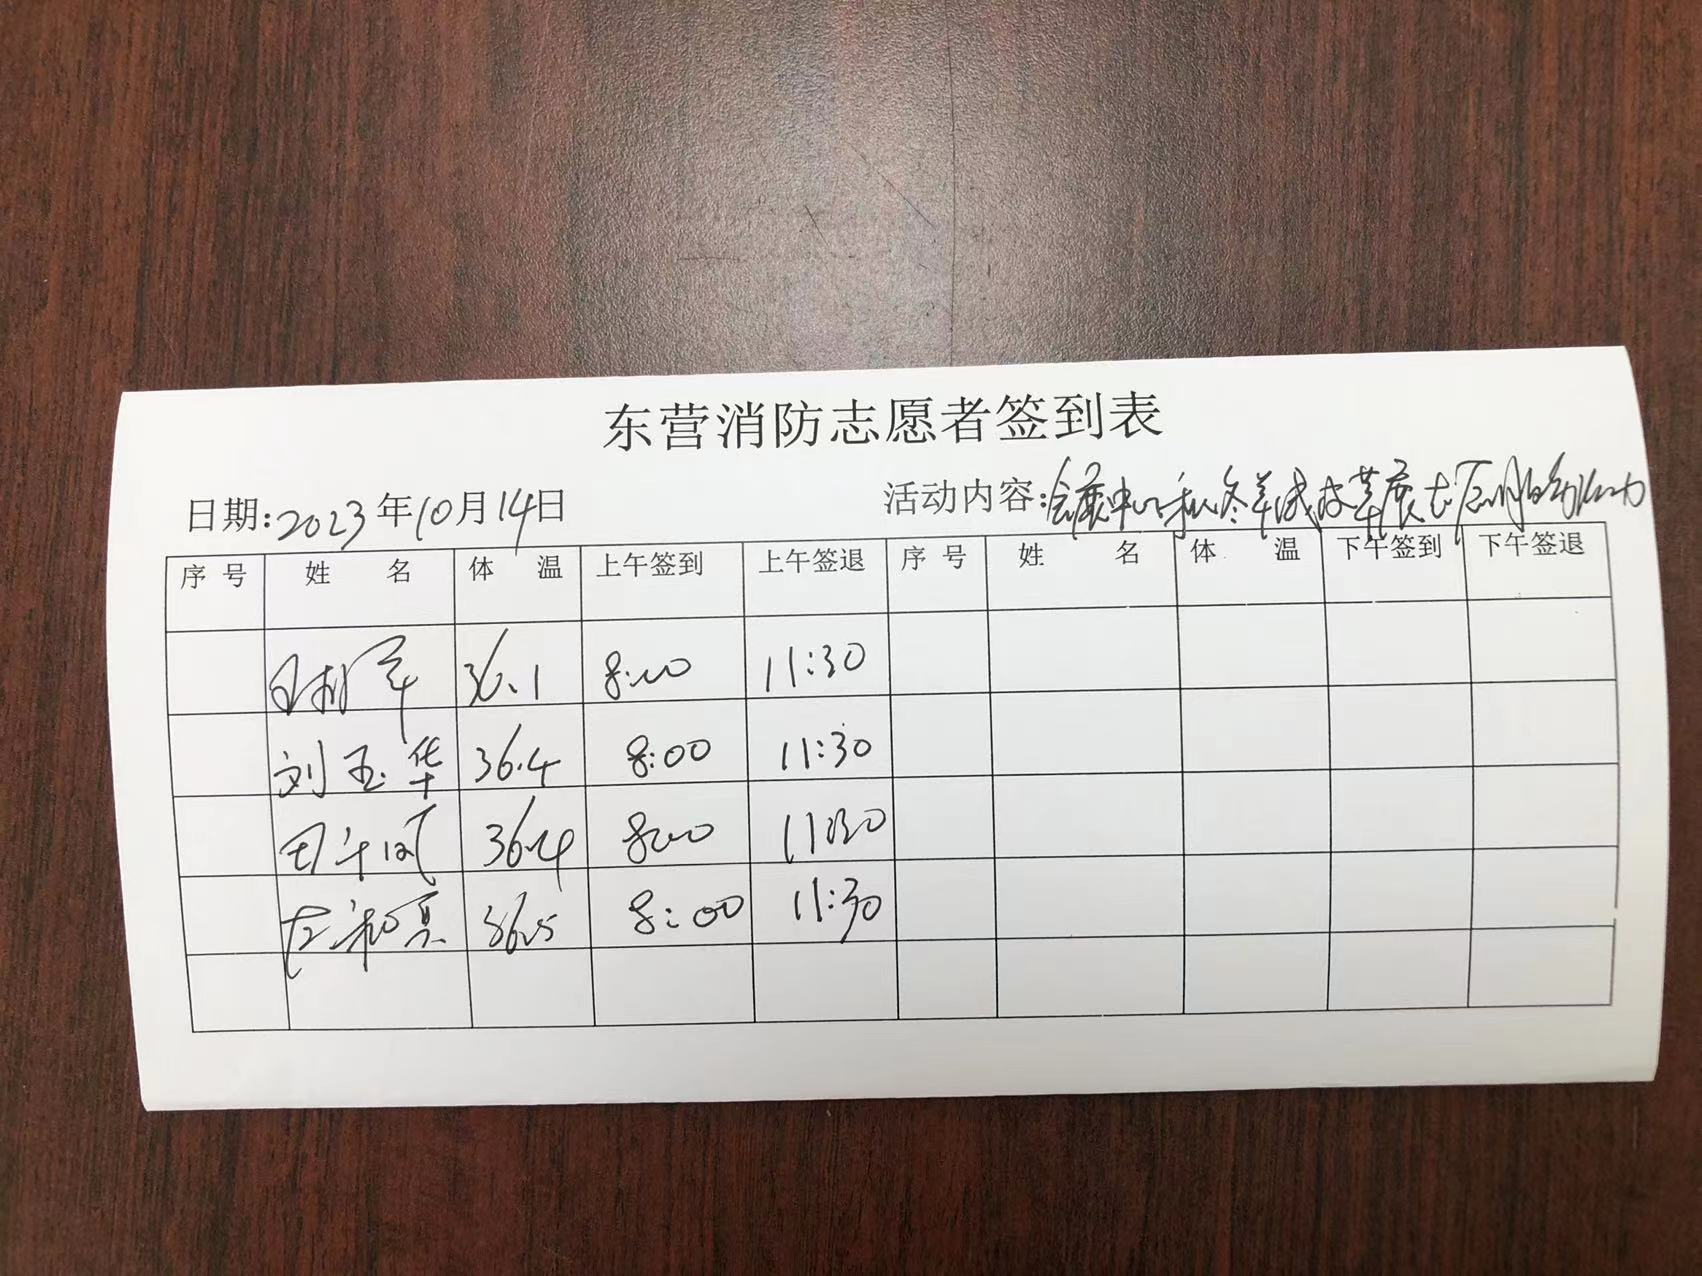 东营消防志愿者签到表
日期:2023年10月14日 活动内容:会展中心秋冬羊绒皮草展
序号 姓 名 体 温 上午签到 上午签退 序号 姓 名 体 温 下午签到 下午签退
36.1 8:00 11:30
刘玉华 36.4 8:00 11:30
36.4 8:00 11:30
36.5 8:00 11:30